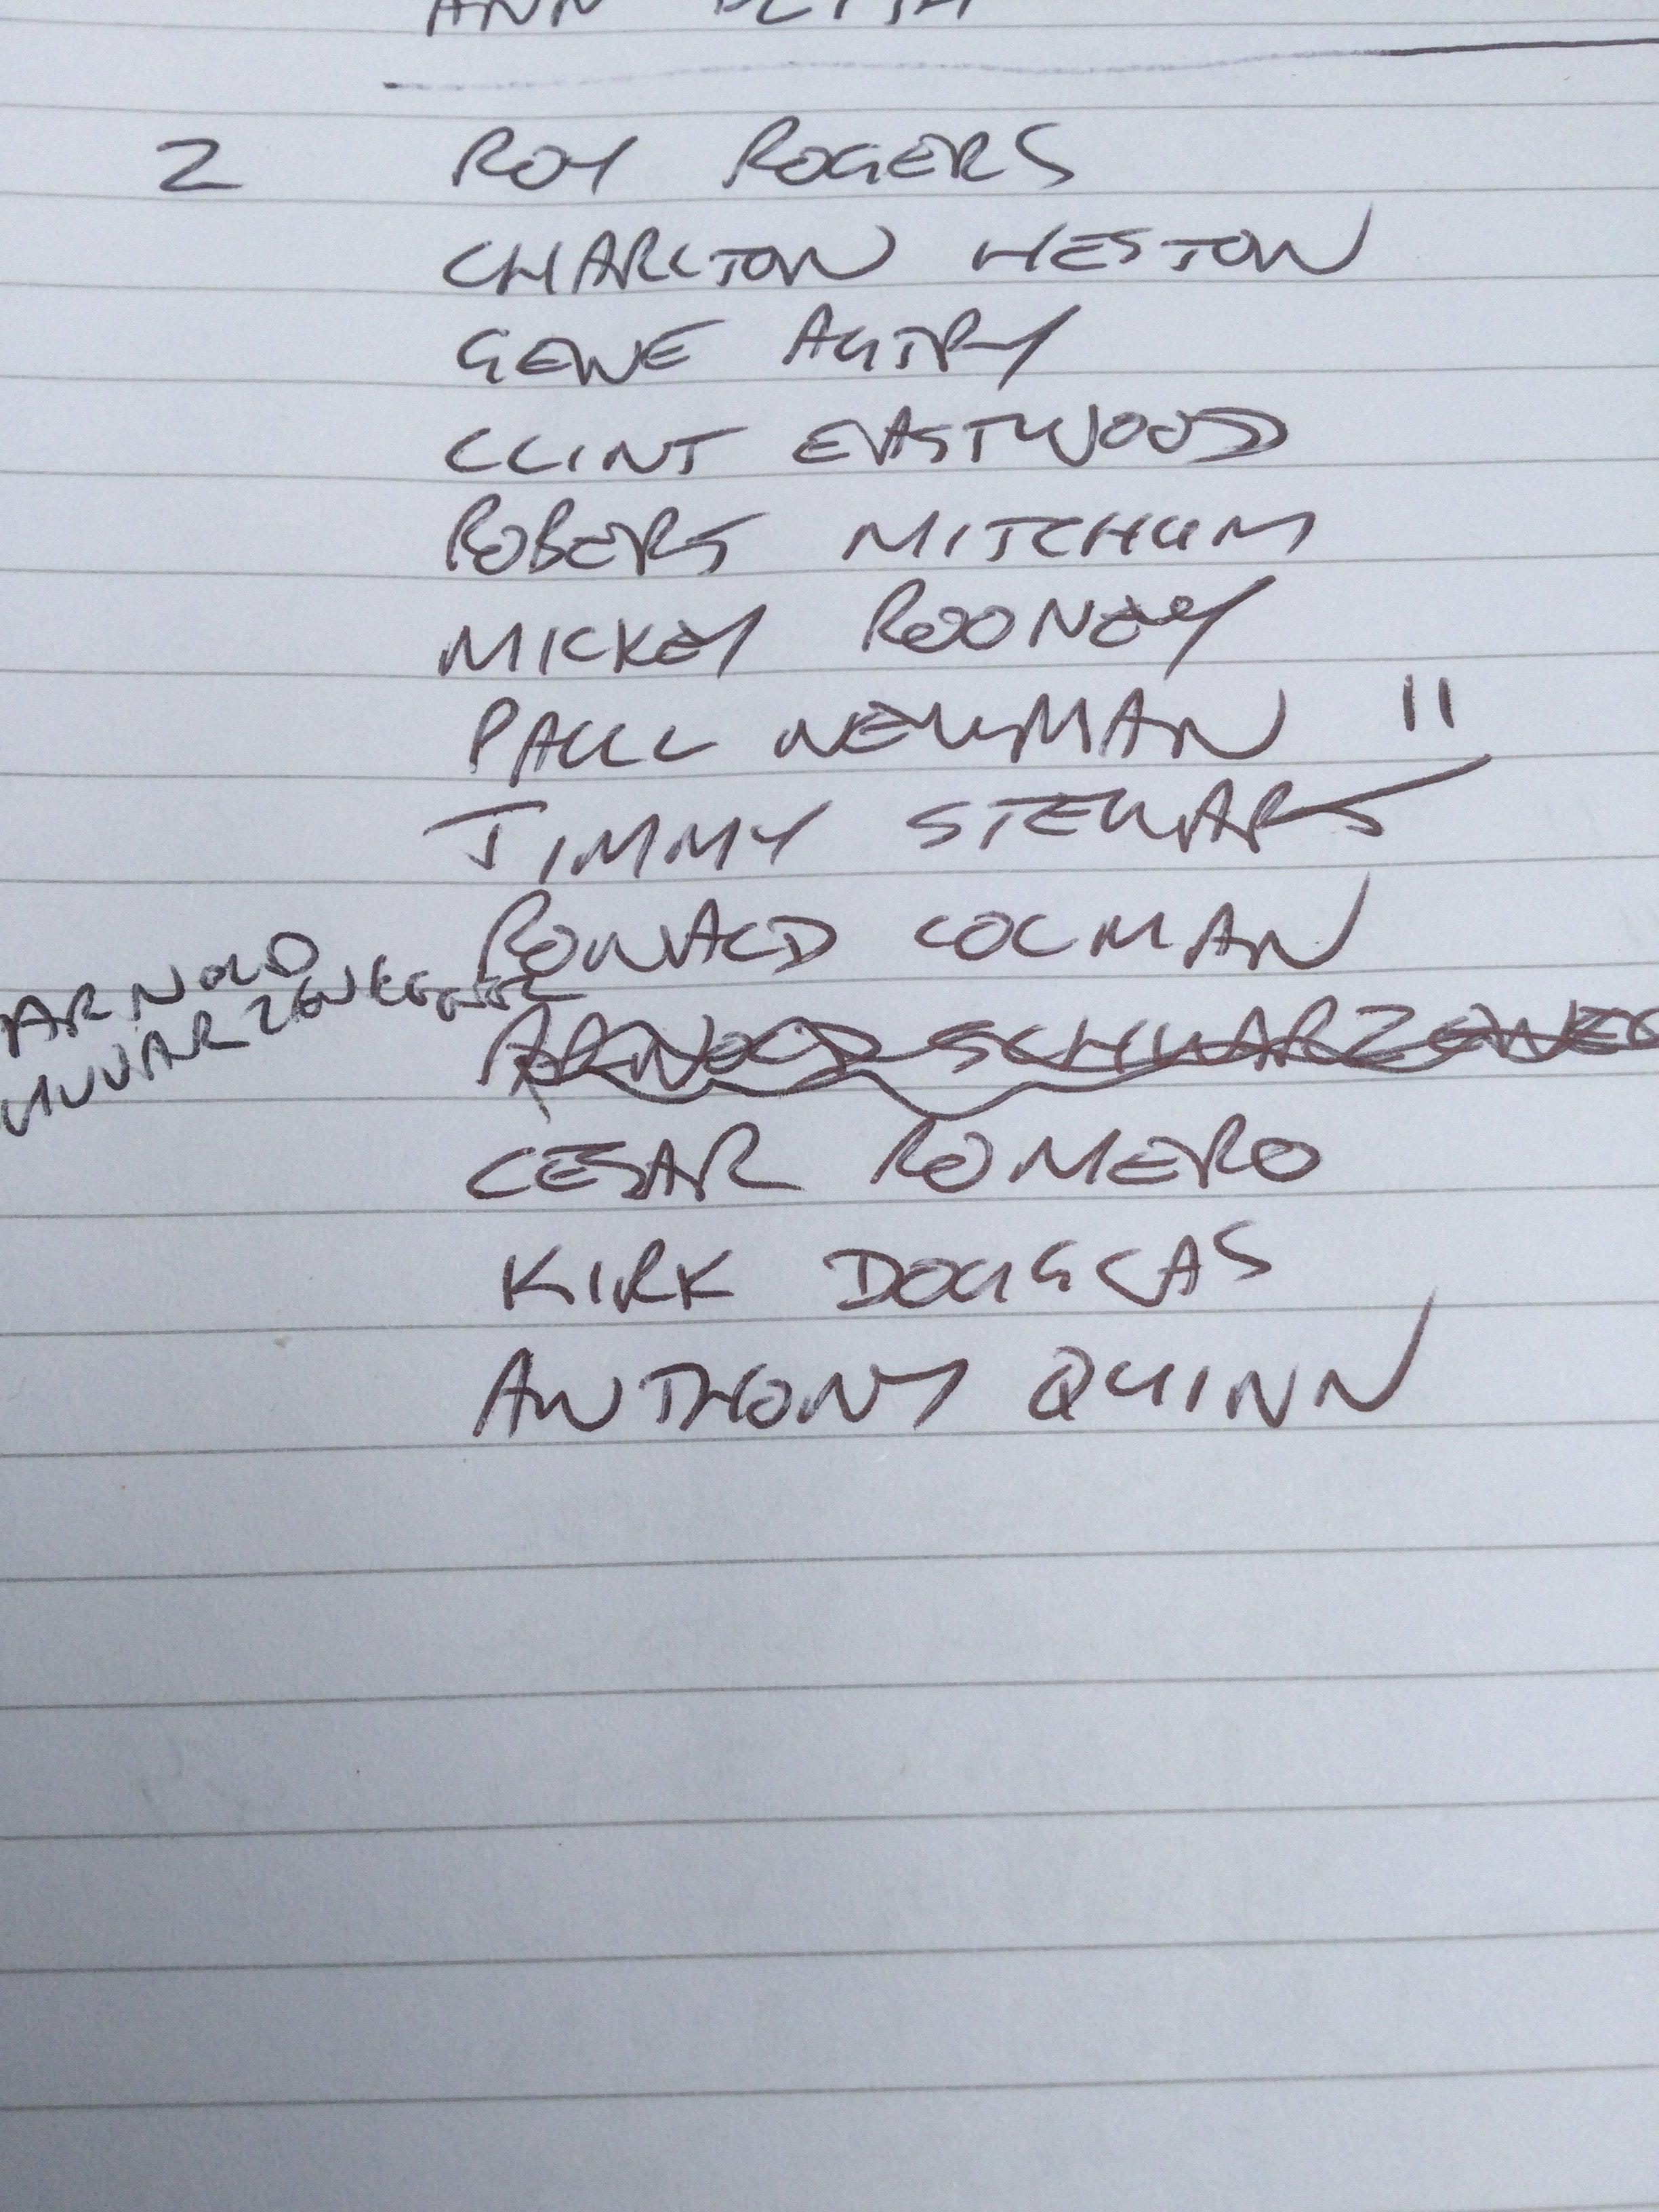 ANN
2 ROY ROGERS
CHARLTON HESTON
GENE AUTRY
CLINT EASTWOOD
ROBERT MITCHUM
MICKEY ROONEY
PAUL NEWMAN 11
JIMMY STEWART
RONALD COLMAN
ARNOLD
ARNOLD SCHWARZENEG
CESAR ROMERO
KIRK DOUGLAS
ANTHONY QUINN